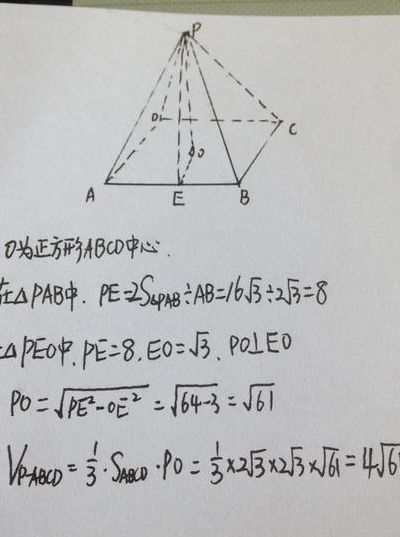 P
D
C
O
A
E
B
O为正方形ABCD中心.
在△PAB中. PE=2S△PAB÷AB=16√3÷2√3=8
△PEO中. PE=8. EO=√3. PO⊥EO
PO=√PE²-OE² =√64-3=√61
VP-ABCD=1/3·SABCD·PO=1/3×2√3×2√3×√61=4√6